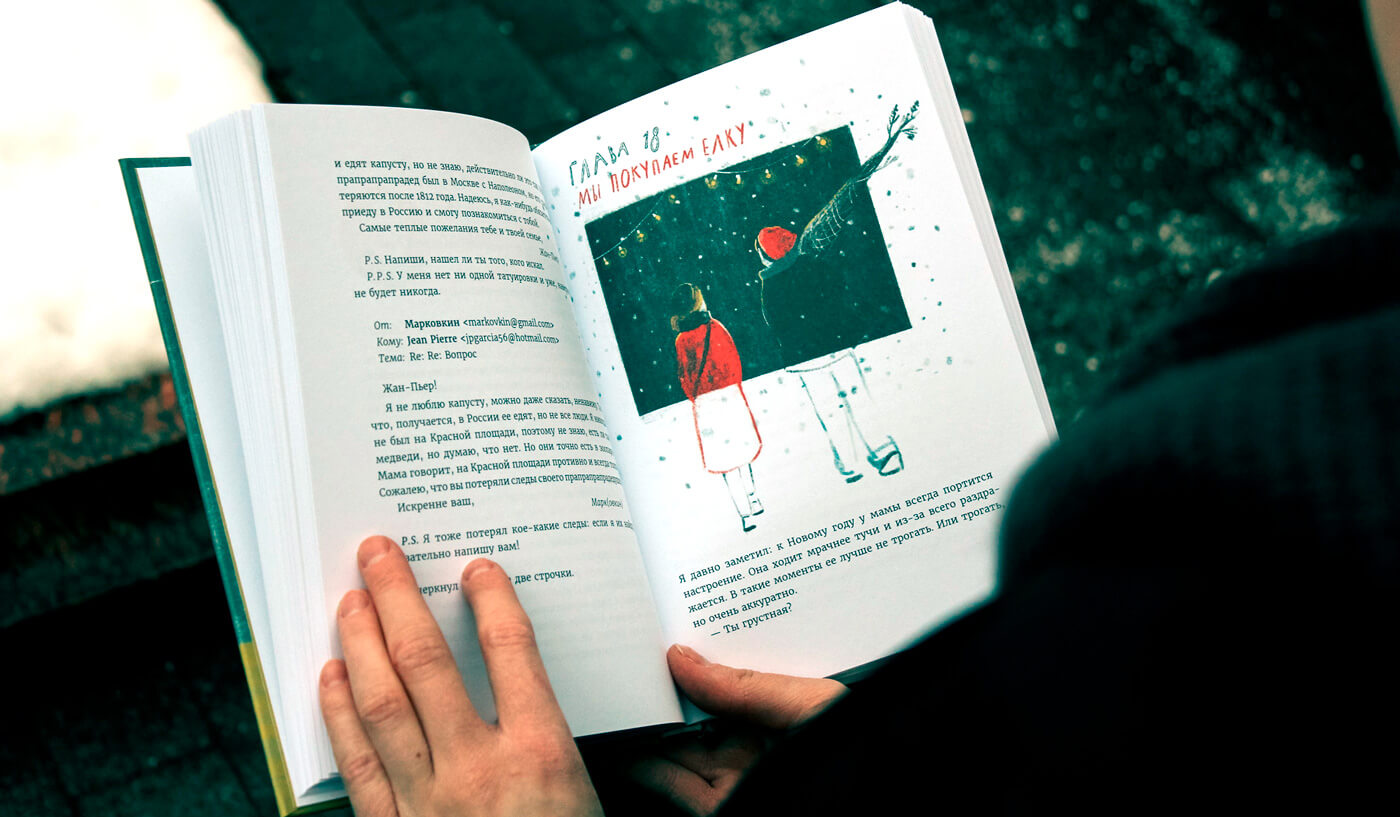 и едят капусту, но не знаю, действительно ли это так
прапрапрапрадед был в Москве с Наполеоном, но его
теряются после 1812 года. Надеюсь, я как-нибудь
приеду в Россию и смогу познакомиться с тобой.
Самые теплые пожелания тебе и твоей семье,
P.S. Напиши, нашел ли ты того, кого искал.
P.P.S. У меня нет ни одной татуировки и уже,
не будет никогда.
От: Марковкин <markovkin@gmail.com>
Кому: Jean Pierre <jpgarcia56@hotmail.com>
Тема: Re: Re: Вопрос
Жан-Пьер!
Я не люблю капусту, можно даже сказать,
что, получается, в России ее едят, но не все люди. Я
не был на Красной площади, поэтому не знаю, есть ли
медведи, но думаю, что нет. Но они точно есть в
Мама говорит, на Красной площади противно и всегда
Сожалею, что вы потеряли следы своего
Искренне ваш,
P.S. Я тоже потерял кое-какие следы: если я их
напишу вам!
две строчки.
ГЛАВА 18
МЫ ПОКУПАЕМ ЕЛКУ
Я давно заметил: к Новому году у мамы всегда портится
настроение. Она ходит мрачнее тучи и из-за всего раздра-
жается. В такие моменты ее лучше не трогать. Или трогать,
но очень аккуратно.
— Ты грустная?